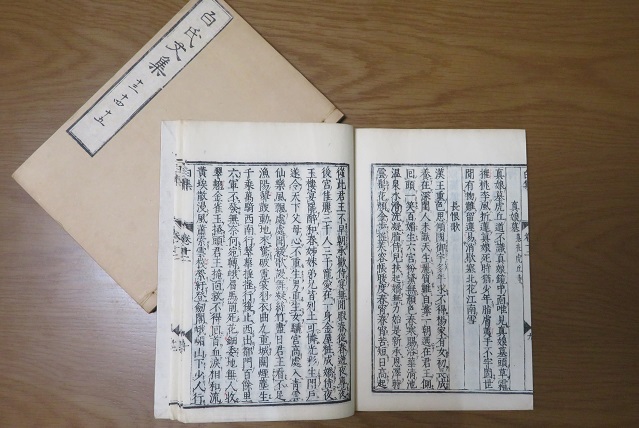 白氏文集 十三 十四 十五
真娘墓 墓在虎丘寺
真娘墓虎丘道不識真娘鏡中面唯見真娘墓頭草霜
摧桃李風折蓮真娘死時猶少年脂膚荑手不牢固世
間有物難留連易消歇塞北花江南雪
長恨歌
漢王重色思傾國御宇多年求不得楊家有女初長成
養在深閨人未識天生麗質難自棄一朝選在君王側
回頭一笑百媚生六宮粉黛無顏色春寒賜浴華清池
溫泉水滑洗凝脂侍兒扶起嬌無力始是新承恩澤時
雲鬢花顏金步搖芙蓉帳暖度春宵春宵苦短日高起
從此君王不早朝承歡侍宴無閑暇春從春遊夜專夜
後宮佳麗三千人三千寵愛在一身金屋粧成嬌侍夜
玉樓宴罷醉和春姊妹弟兄皆列土可憐光彩生門戶
遂令天下父母心不重生男重生女驪宮高處入青雲
仙樂風飄處處聞緩歌慢舞凝絲竹盡日君王看不足
漁陽鼙鼓動地來驚破霓裳羽衣曲九重城闕煙塵生
千乘萬騎西南行翠華搖搖行復止西出都門百餘里
六軍不發無奈何宛轉蛾眉馬前死花鈿委地無人收
翠翹金雀玉搔頭君王掩眼救不得回首血淚相和流
黃埃散漫風蕭索雲棧縈紆登劍閣峨嵋山下少人行